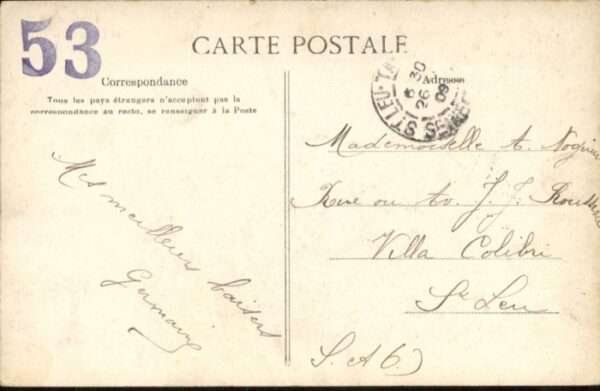 53
CARTE POSTALE
Correspondance
Tous les pays étrangers n'acceptent pas la
correspondance au recto, se renseigner à la Poste
Adresse
ST LEU-TA
6 30
26
09
SEINE-E
Mes meilleurs baisers
Germain
Mademoiselle A. Noguier
Rue ou Av. J. J. Rousseau
Villa Colibri
St Leu